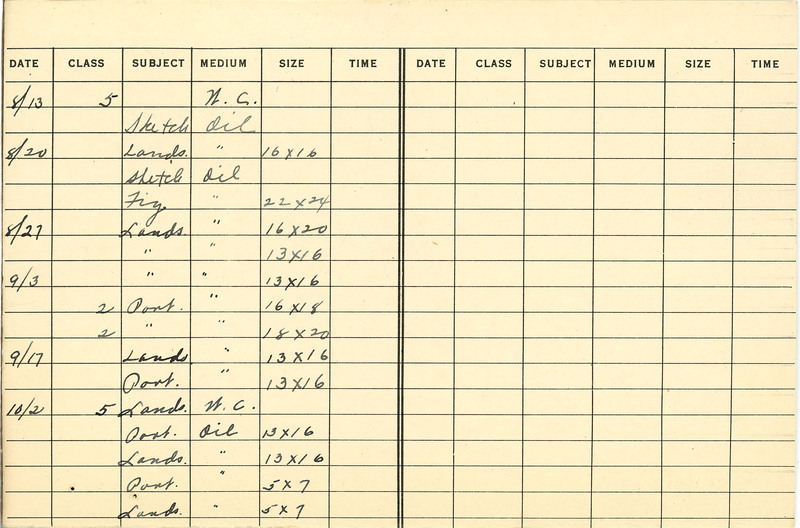 DATE CLASS SUBJECT MEDIUM SIZE TIME DATE CLASS SUBJECT MEDIUM SIZE TIME
8/13 5 W. C.
Sketch Oil
8/20 Lands. " 16 x 16
Sketch Oil
Fig. " 22 x 24
8/27 Lands. " 16 x 20
" " 13 x 16
9/3 " " 13 x 16
2 Port. " 16 x 18
2 " " 18 x 20
9/17 Lands " 13 x 16
Port. " 13 x 16
10/2 5 Lands. W. C.
Port. Oil 13 x 16
Lands. " 13 x 16
Port. " 5 x 7
Lands. " 5 x 7